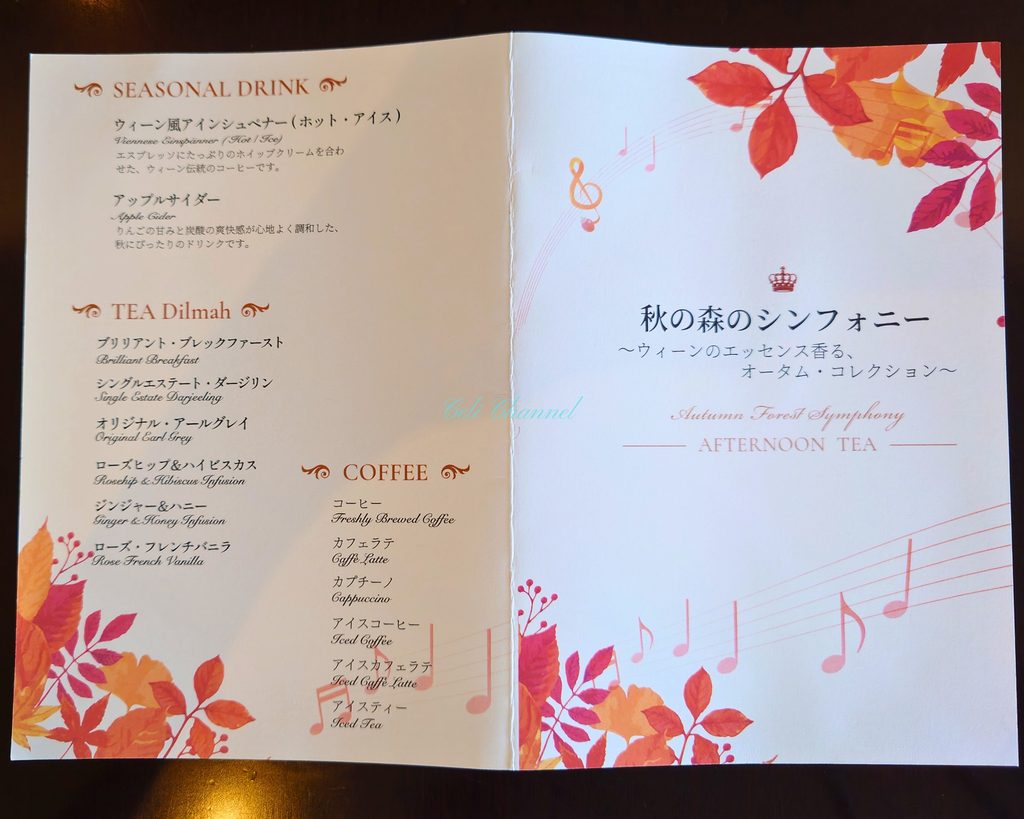 SEASONAL DRINK
ウィーン風アインシュペナー(ホット・アイス)
Viennese Einspänner (Hot / Ice)
エスプレッソにたっぷりのホイップクリームを合わ
せた、ウィーン伝統のコーヒーです。
アップルサイダー
Apple Cider
りんごの甘みと炭酸の爽快感が心地よく調和した、
秋にぴったりのドリンクです。
TEA Dilmah
ブリリアント・ブレックファースト
Brilliant Breakfast
シングルエステート・ダージリン
Single Estate Darjeeling
オリジナル・アールグレイ
Original Earl Grey
ローズヒップ&ハイビスカス
Rosehip & Hibiscus Infusion
ジンジャー&ハニー
Ginger & Honey Infusion
ローズ・フレンチバニラ
Rose French Vanilla
COFFEE
コーヒー
Freshly Brewed Coffee
カフェラテ
Caffè Latte
カプチーノ
Cappuccino
アイスコーヒー
Iced Coffee
アイスカフェラテ
Iced Caffè Latte
アイスティー
Iced Tea
秋の森のシンフォニー
～ウィーンのエッセンス香る、
オータム・コレクション～
Autumn Forest Symphony
AFTERNOON TEA
Celi Channel